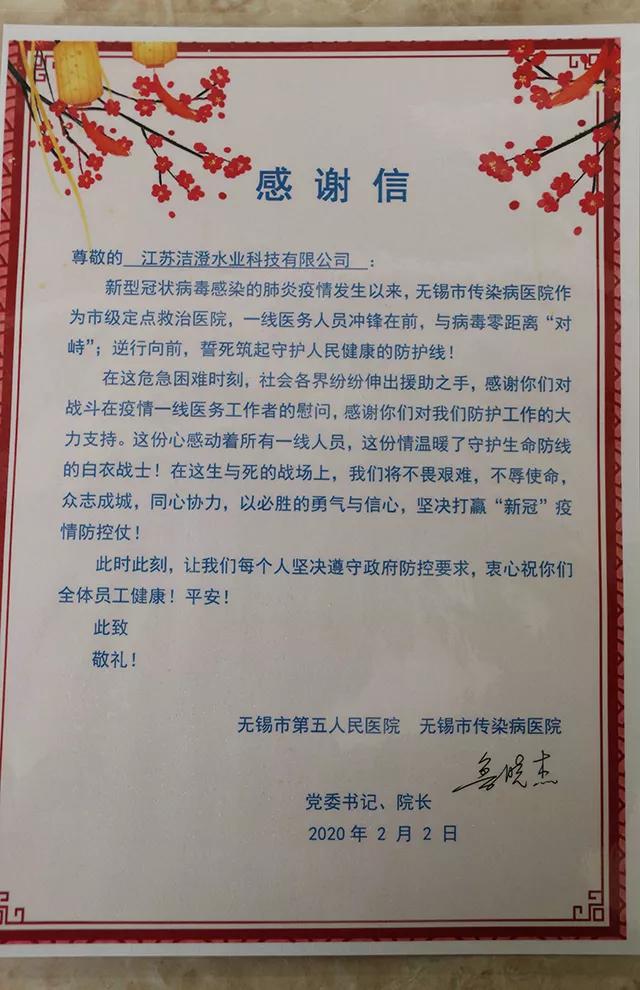 感谢信
尊敬的 江苏洁澄水业科技有限公司 :
新型冠状病毒感染的肺炎疫情发生以来，无锡市传染病医院作
为市级定点救治医院，一线医务人员冲锋在前，与病毒零距离“对
峙”；逆行向前，誓死筑起守护人民健康的防护线！
在这危急困难时刻，社会各界纷纷伸出援助之手，感谢你们对
战斗在疫情一线医务工作者的慰问，感谢你们对我们防护工作的大
力支持。这份心感动着所有一线人员，这份情温暖了守护生命防线
的白衣战士！在这生与死的战场上，我们将不畏艰难，不辱使命，
众志成城，同心协力，以必胜的勇气与信心，坚决打赢“新冠”疫
情防控仗！
此时此刻，让我们每个人坚决遵守政府防控要求，衷心祝你们
全体员工健康！平安！
此致
敬礼！
无锡市第五人民医院 无锡市传染病医院
鲁晓杰
党委书记、院长
2020 年 2 月 2 日